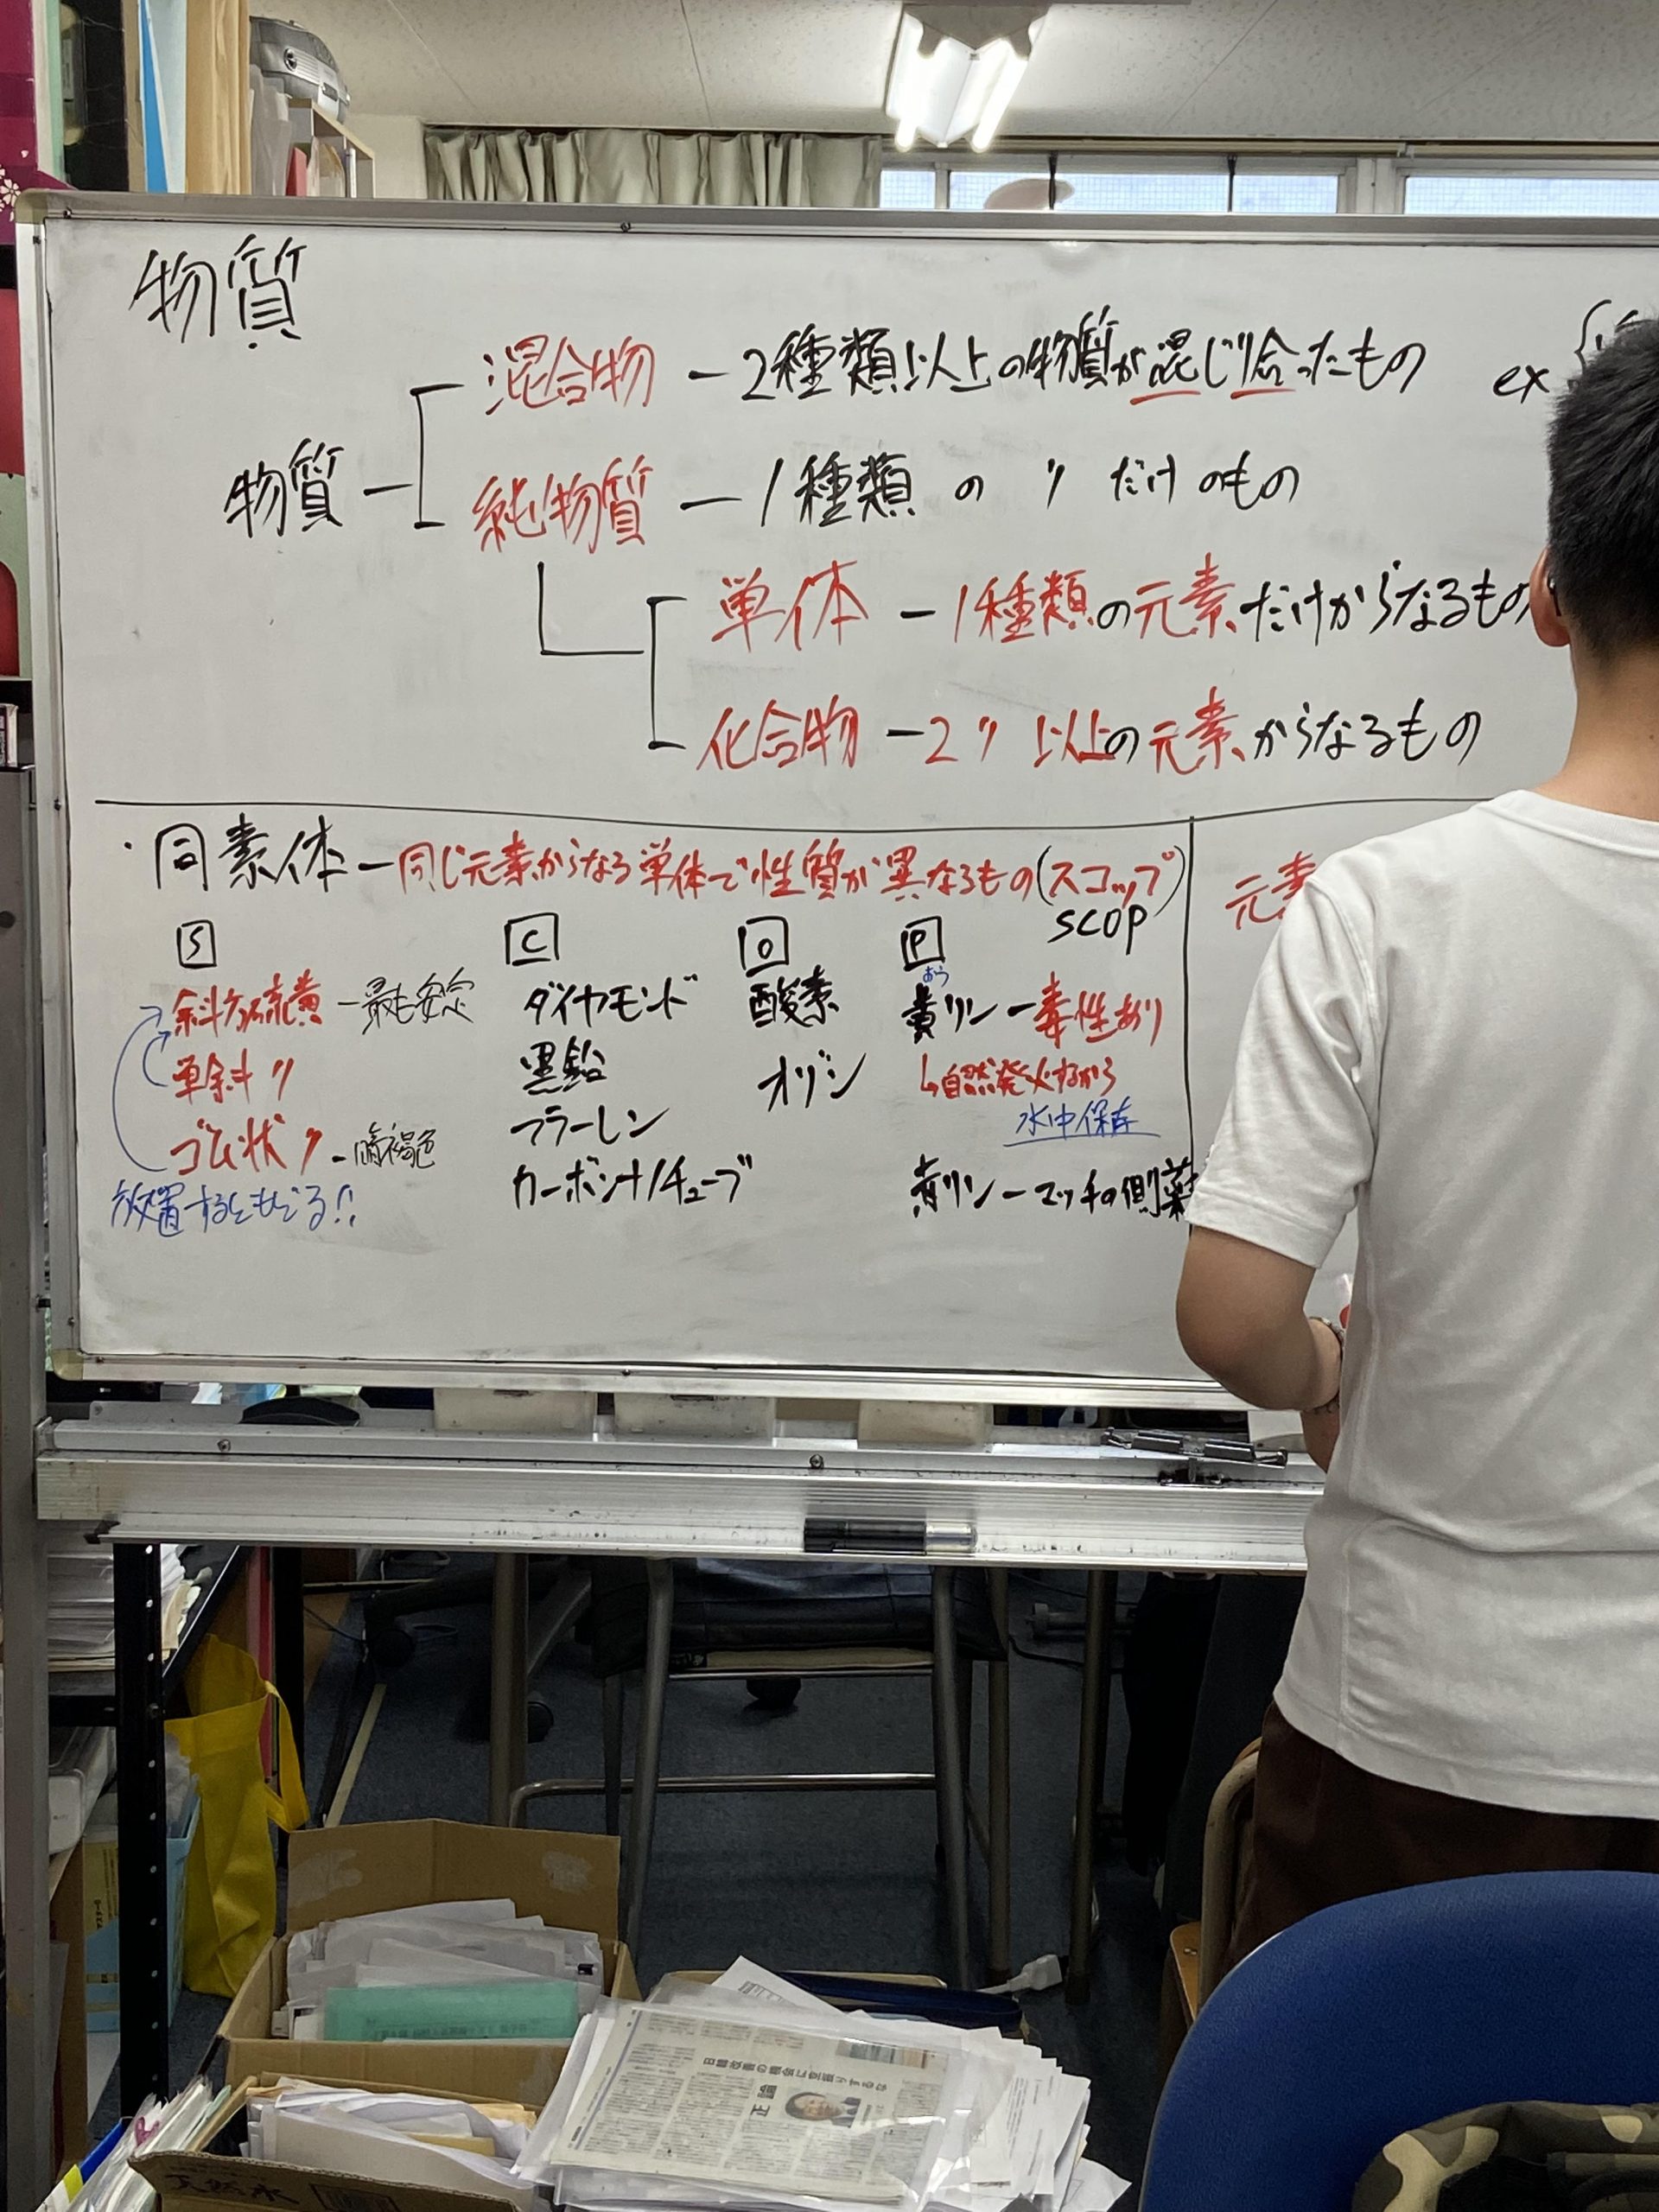 物質
混合物 ー 2種類以上の物質が混じり合ったもの ex
物質
純物質 ー 1種類 の 〃 だけ のもの
単体 ー 1種類の元素だけからなるもの
化合物 ー 2 〃 以上の元素からなるもの
・同素体 ー 同じ元素からなる単体で性質が異なるもの(スコップ)
SCOP
元素
S
斜方硫黄 ー 最も安定
単斜 〃
ゴム状 〃 ー 暗褐色
放置するともどる!!
C
ダイヤモンド
黒鉛
フラーレン
カーボンナノチューブ
O
酸素
オゾン
P
おう
黄リン ー 毒性あり
↳自然発火するから
水中保存
赤リン ー マッチの側薬
日韓改善の機会に空振りするな
正論
天然水